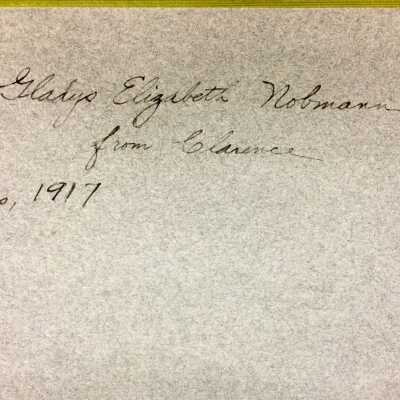 Gladys Elizabeth Nobmann
from Clarence
, 1917